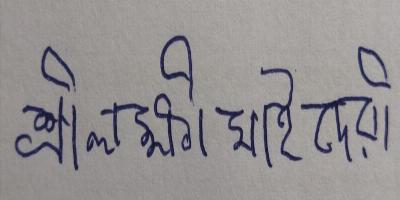 শ্রী লক্ষী মাই দেৱী